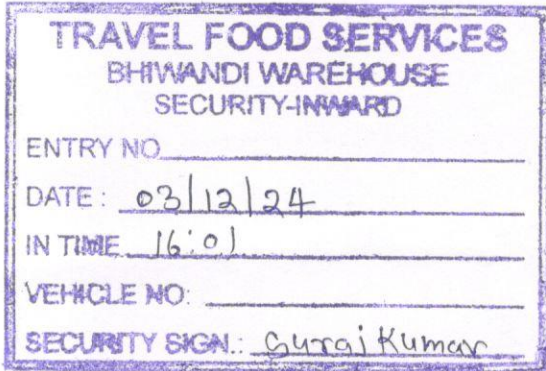 TRAVEL FOOD SERVICES
BHIWANDI WAREHOUSE
SECURITY-INWARD
ENTRY NO
DATE : 03/12/24
IN TIME 16:01
VEHICLE NO:
SECURITY SIGN.: Suraj Kumar